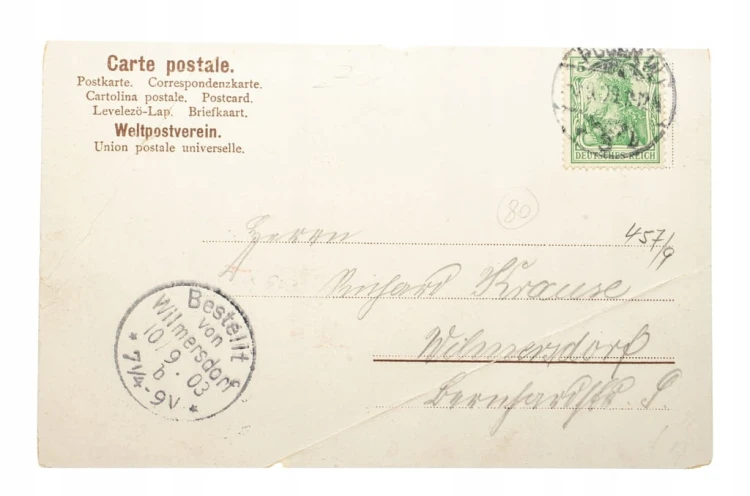 Carte postale.
Postkarte. Correspondenzkarte.
Cartolina postale. Postcard.
Levelezö-Lap. Briefkaart.
Weltpostverein.
Union postale universelle.
DEUTSCHES REICH
80
457/9
Herrn
Richard Krause
Wilmersdorf
Bernhardstr.
Bestellt
von
Wilmersdorf
10/9.03
b
* 7¼-9V *